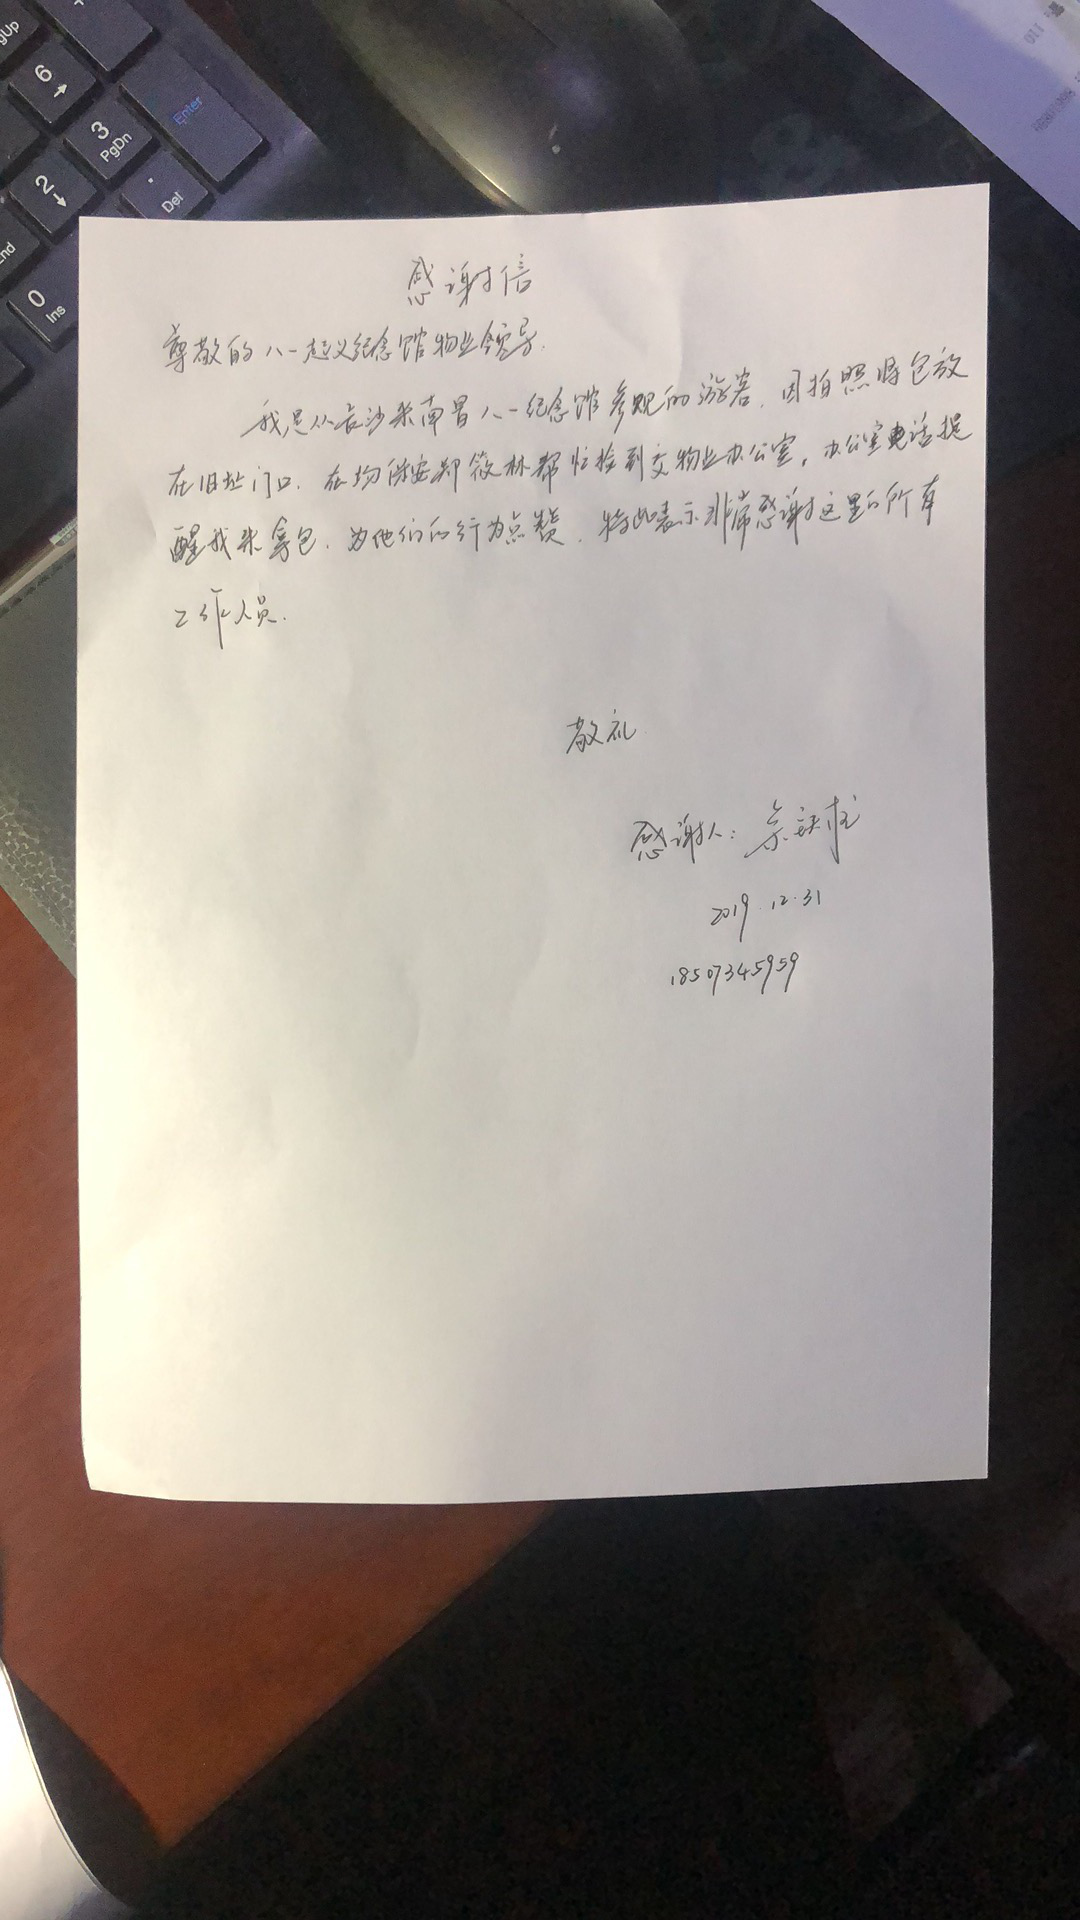 gUp
6
3
PgDn
Enter
2
.
Del
End
0
Ins
110
感谢信
尊敬的八一起义纪念馆物业领导.
我是从长沙来南昌八一纪念馆参观的游客.因拍照将包放
在旧址门口.在场保安郑筱林帮忙捡到交物业办公室,办公室电话提
醒我来拿包.为他们的行为点赞.特此表示非常感谢这里的所有
工作人员.
敬礼
感谢人:
2019.12.31
18507345959